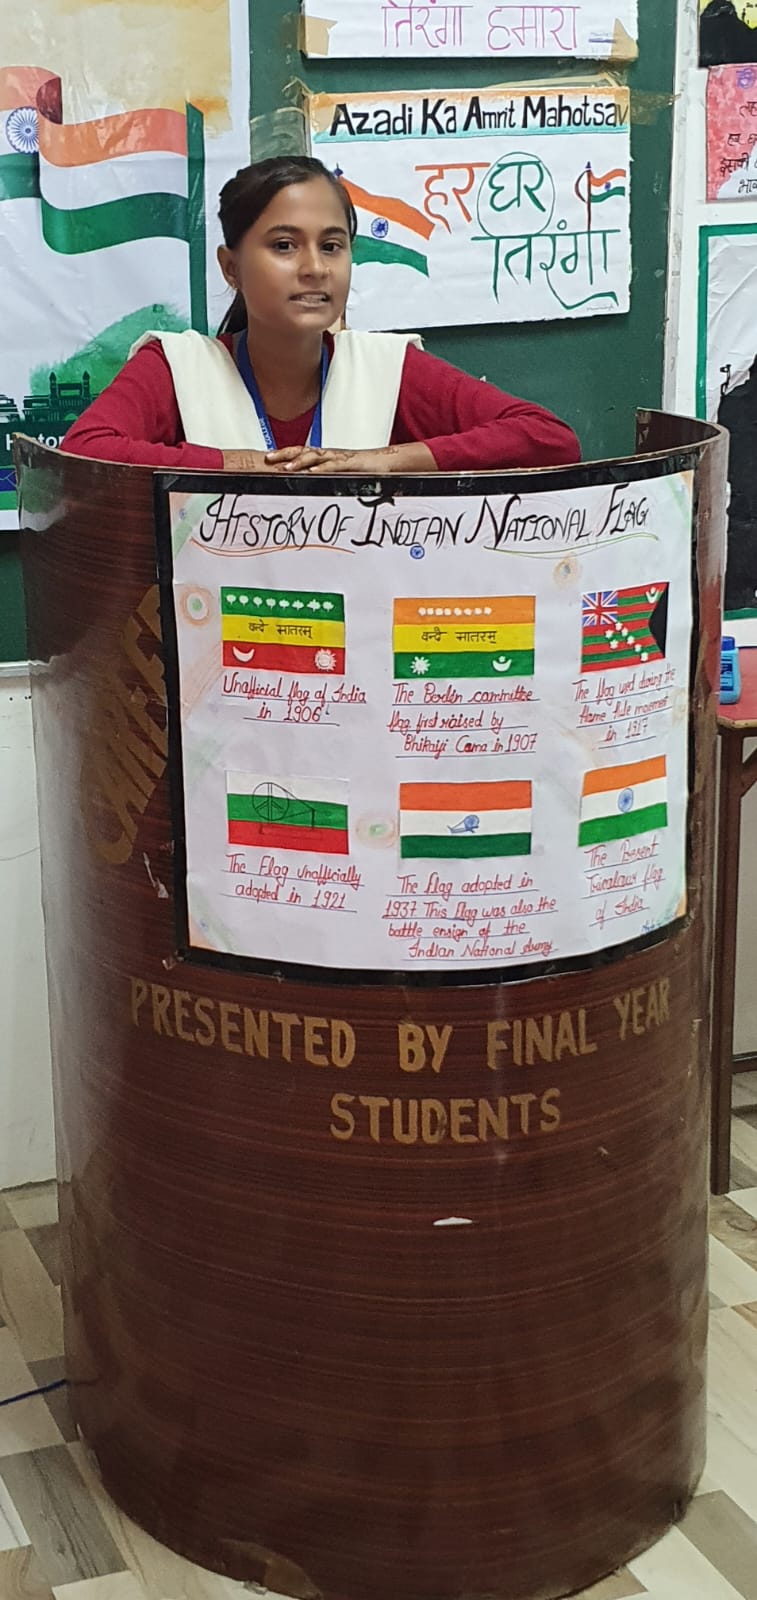 तिरंगा हमारा
Azadi Ka Amrit Mahotsav
हर घर
तिरंगा
HISTORY OF INDIAN NATIONAL FLAG
वन्दे मातरम्
Unofficial flag of India
in 1906
वन्दे मातरम्
The Berlin committee
flag first raised by
Bhikaiji Cama in 1907
The flag used during the
Home Rule movement
in 1917
The Flag unofficially
adopted in 1921
The flag adopted in
1937 This Flag was also the
battle ensign of the
Indian National
The Present
flag
of India
PRESENTED BY FINAL YEAR
STUDENTS